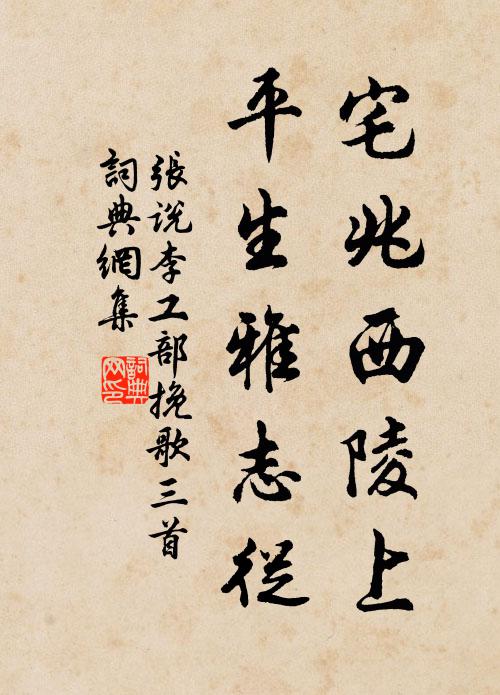 宅兆西陵上
平生雅志從
張说李工部挽歌三首
詞典網集
詞典网印